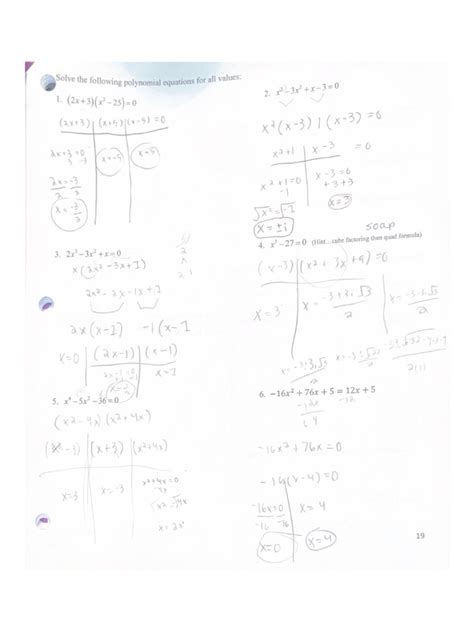 Solve the following polynomial equations for all values:
1. (2x+3)(x²-25)=0
(2x+3) (x+5) (x-5) =0
2x+3=0
-3 -3
2x=-3
2 2
x=-3/2
x=-5
x=5
2. x³-3x²+x-3=0
x²(x-3) 1(x-3)=0
x²+1 x-3 =0
x²+1=0
-1
√x²=√-1
x=±i
x-3=0
+3 +3
x=3
3. 2x³-3x²+x=0
x(2x²-3x+1)
2x²-2x-1x+1
2x(x-1) -1(x-1
x=0 (2x-1) (x-1)
2x-1=0
x=1
soap
4. x³-27=0 (Hint...cube factoring then quad formula)
(x-3) (x²+3x+9)=0
x=3
5. x⁴-5x²-36=0
(x²-4x)(x²+4x)
(x+3) (x²+4x)
x=3
x=-3
x²+4x=0
6. -16x²+76x+5=12x+5
-12x -12
-16x²+76x=0
-16(x-4)=0
-16x=0
-16 -16
x=4
x=0
x=4
19